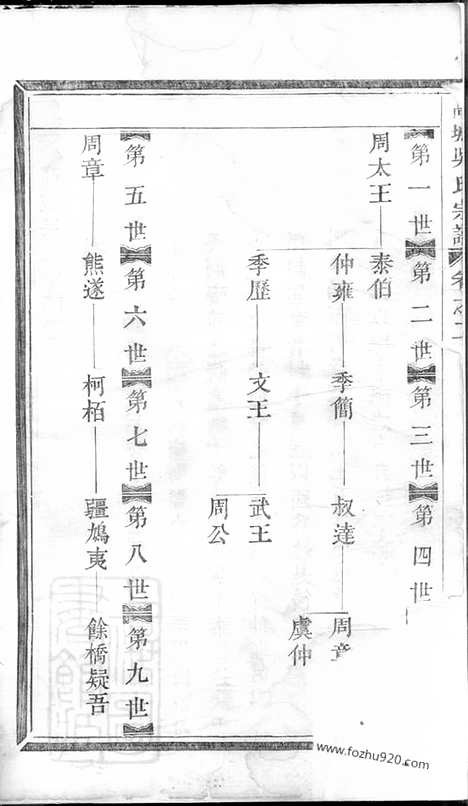 吳氏宗譜 卷之二
第一世 第二世 第三世 第四世
周太王 泰伯
仲雍 季簡 叔達 周章
虞仲
季歷 文王 武王
周公
第五世 第六世 第七世 第八世 第九世
周章 熊遂 柯栢 疆鳩夷 餘橋疑吾
www.fozhu920.com